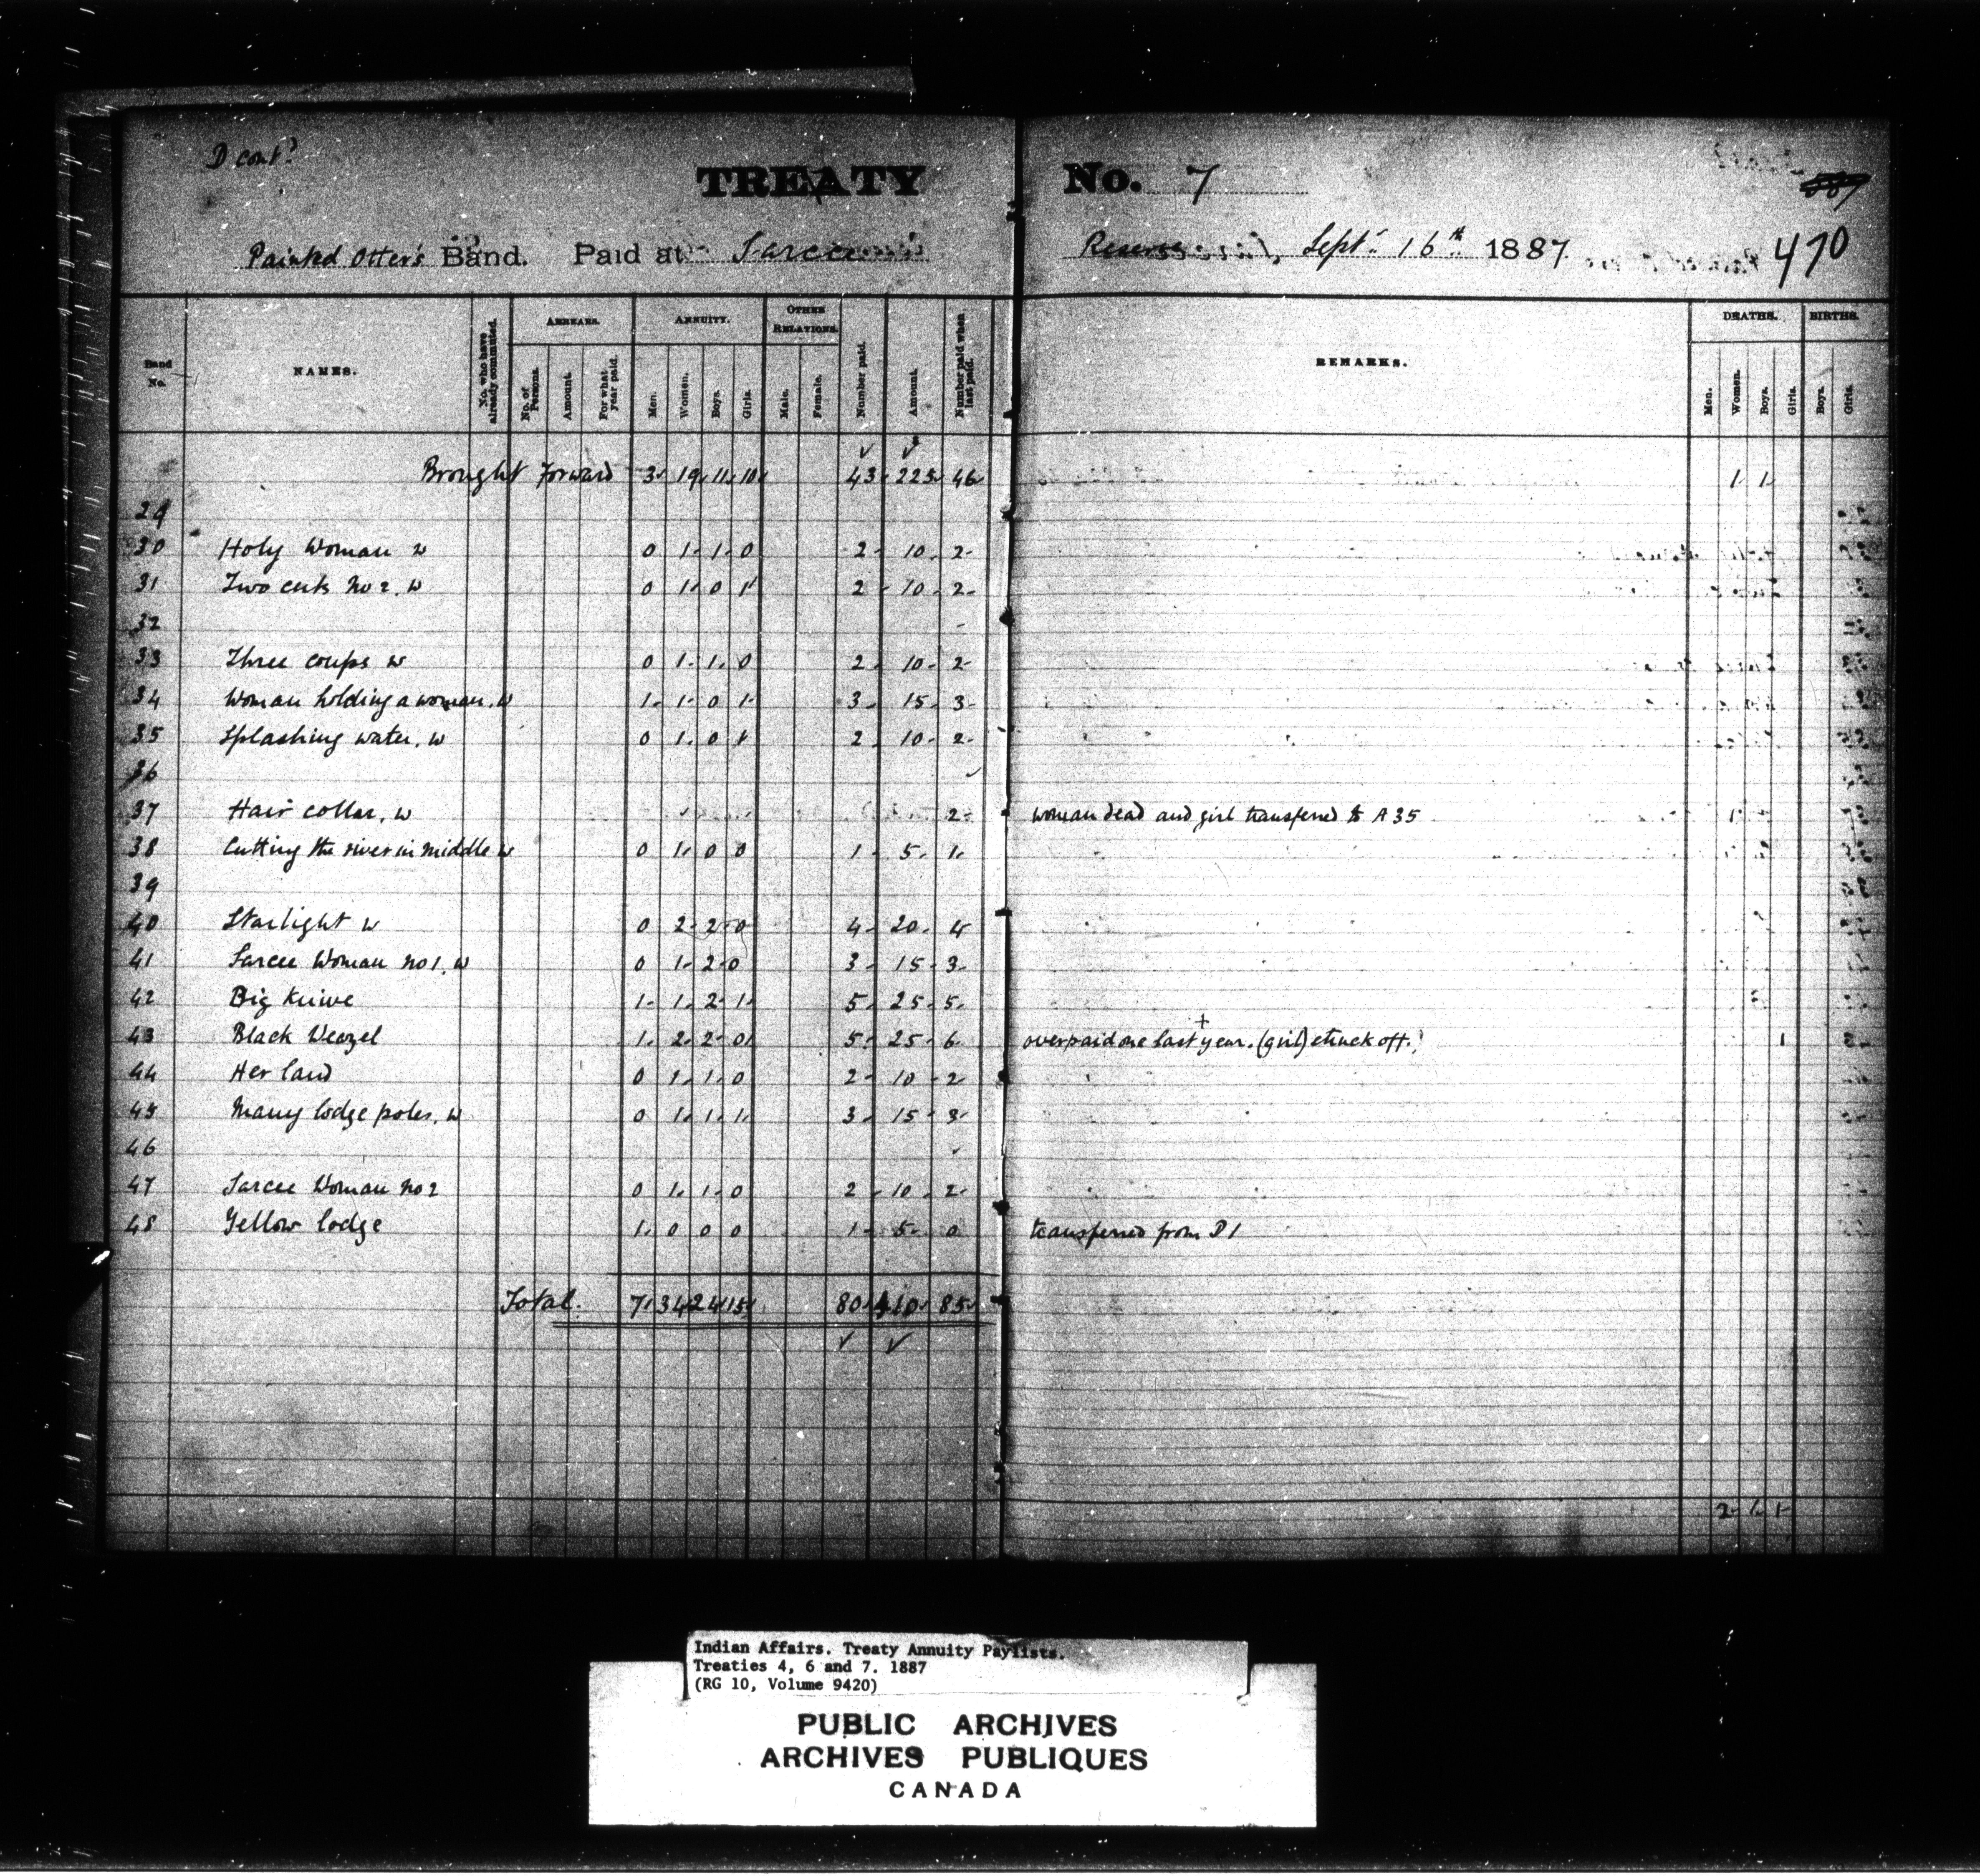 D cont?
TREATY No. 7
Painted Otter's Band. Paid at Sarcee Reserve, Sept. 16th 1887
470
Band No. NAMES. No. who have already commuted. ARREARS. No. of Persons. Amount. For what year paid. ANNUITY. Men. Women. Boys. Girls. OTHER RELATIONS. Male. Female. Number paid. Amount. Number paid when last paid. REMARKS. DEATHS. Men. Women. Boys. Girls. BIRTHS. Boys. Girls.
Brought Forward 3 19 11 10 43 225 46 1 1
29
30 Holy Woman w 0 1 1 0 2 10 2
31 Two cuts No 2, w 0 1 0 1 2 10 2
32
33 Three coups w 0 1 1 0 2 10 2
34 Woman holding a woman, w 1 1 0 1 3 15 3
35 Splashing water, w 0 1 0 1 2 10 2
36
37 Hair collar, w 2 woman dead and girl transferred to A 35
38 Cutting the river in middle w 0 1 0 0 1 5 1
39
40 Starlight w 0 2 2 0 4 20 4
41 Sarcee Woman no 1, w 0 1 2 0 3 15 3
42 Big Knive 1 1 2 1 5 25 5
43 Black Weazel 1 2 2 0 5 25 6 overpaid one last + year. (girl) struck off. 1
44 Her land 0 1 1 0 2 10 2
45 Many lodge poles, w 0 1 1 1 3 15 3
46
47 Sarcee Woman no 2 0 1 1 0 2 10 2
48 Yellow lodge 1 0 0 0 1 5 0 transferred from D1
Total. 7 34 24 15 80 410 85
2 1 1
Indian Affairs. Treaty Annuity Paylists.
Treaties 4, 6 and 7. 1887
(RG 10, Volume 9420)
PUBLIC ARCHIVES
ARCHIVES PUBLIQUES
CANADA